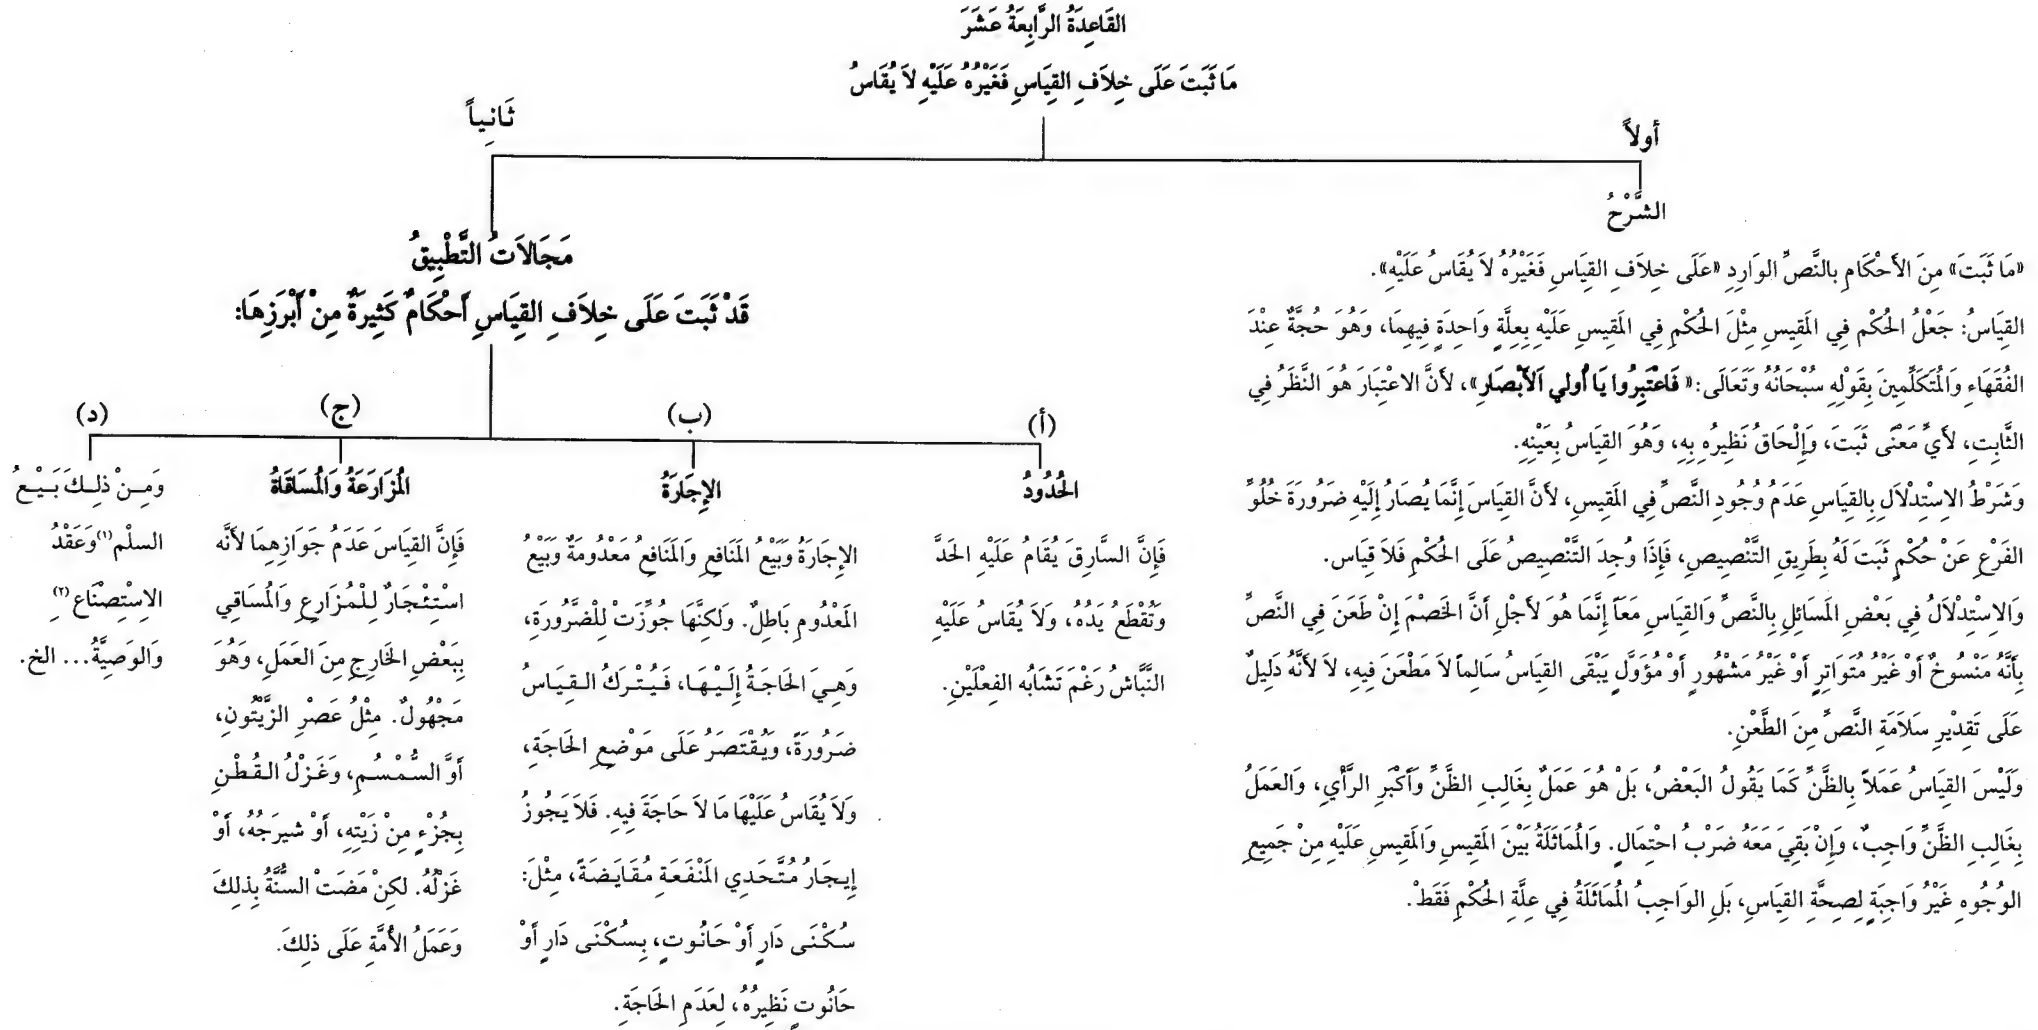 القَاعِدَةُ الرَّابِعَةُ عَشَرَ
مَا ثَبَتَ عَلَى خِلاَفِ القِيَاسِ فَغَيْرُهُ عَلَيْهِ لاَ يُقَاسُ
أولاً
الشَّرْحُ
«مَا ثَبَتَ» مِنَ الأَحْكَامِ بالنَّصِّ الوَارِدِ «عَلَى خِلاَفِ القِيَاسِ فَغَيْرُهُ لاَ يُقَاسُ عَلَيْهِ».
القِيَاسُ: جَعْلُ الحُكْمِ فِي المَقِيسِ مِثْلَ الحُكْمِ فِي المَقِيسِ عَلَيْهِ بِعِلَّةٍ وَاحِدَةٍ فِيهِمَا، وَهُوَ حُجَّةٌ عِنْدَ
الفُقَهَاءِ وَالمُتَكَلِّمِينَ بِقَوْلِهِ سُبْحَانُهُ وَتَعَالَى: «فَاعْتَبِرُوا يَا أُولي الأَبْصَارِ»، لأَنَّ الاعْتِبَارَ هُوَ النَّظَرُ فِي
الثَّابِتِ، لأَيِّ مَعْنًى ثَبَتَ، وَإِلْحَاقُ نَظِيرُه بِهِ، وَهُوَ القِيَاسُ بِعَيْنِهِ.
وَشَرْطُ الاِسْتِدْلاَلِ بِالقِيَاسِ عَدَمُ وُجُودِ النَّصِّ فِي المَقِيسِ، لأَنَّ القِيَاسَ إِنَّمَا يُصَارُ إِلَيْهِ ضَرُورَةَ خُلُوِّ
الفَرْعِ عَنْ حُكْمٍ ثَبَتَ لَهُ بِطَرِيقِ التَّنْصِيصِ، فَإِذَا وُجِدَ التَّنْصِيصُ عَلَى الحُكْمِ فَلاَ قِيَاس.
وَالاِسْتِدْلاَلُ فِي بَعْضِ المَسَائِلِ بِالنَّصِّ وَالقِيَاسِ مَعَاً إِنَّمَا هُوَ لأَجْلِ أَنَّ الخَصْمَ إِنْ طَعَنَ فِي النَّصِّ
بِأَنَّهُ مَنْسُوخٌ أَوْ غَيْرُ مُتَوَاتِرٍ أَوْ غَيْرُ مَشْهُورٍ أَوْ مُؤَوَّلٍ يَبْقَى القِيَاسُ سَالِماً لاَ مَطْعَنَ فِيهِ، لاَ لأَنَّهُ دَلِيلٌ
عَلَى تَقِدْيرِ سَلاَمَةِ النَّصِّ مِنَ الطَّعْنِ.
وَلَيْسَ القِيَاسُ عَمَلاً بِالظَّنِّ كَمَا يَقُولُ البَعْضُ، بَلْ هُوَ عَمَلٌ بِغَالِبِ الظَّنِّ وَأَكْبَرِ الرَّأْيِ، وَالعَمَلُ
بِغَالِبِ الظَّنِّ وَاجِبٌ، وَإِنْ بَقِيَ مَعَهُ ضَرْبُ احْتِمَالٍ. وَالمُمَاثَلَةُ بَيْنَ المَقِيسِ وَالمَقِيسِ عَلَيْهِ مِنْ جَمِيعِ
الوُجُوهِ غَيْرُ وَاجِبَةٍ لِصِحَّةِ القِيَاسِ، بَلِ الوَاجِبُ المُمَاثَلَةُ فِي عِلَّةِ الحُكْمِ فَقَطْ.
ثَانِياً
مَجَالاَتُ التَّطْبِيقُ
قَدْ ثَبَتَ عَلَى خِلاَفِ القِيَاسِ أَحْكَامٌ كَثِيرَةٌ مِنْ أَبْرَزِهَا:
(أ)
الحُدُودُ
فَإِنَّ السَّارِقَ يُقَامُ عَلَيْهِ الحَدَّ
وَتُقْطَعُ يَدُهُ، وَلاَ يُقَاسُ عَلَيْهِ
النَّبَّاشُ رَغْمَ تَشَابُه الفِعْلَيْنِ.
(ب)
الإِجَارَةُ
الإِجَارَةُ وَبَيْعُ المَنَافِعِ وَالمَنَافِعُ مَعْدُومَةٌ وَبَيْعُ
المَعْدُومِ بَاطِلٌ. وَلَكِنَّهَا جُوِّزَتْ لِلْضَّرُورَةِ،
وَهِيَ الحَاجَةُ إِلَيْهَا، فَيُتْرَكُ القِيَاسُ
ضَرُورَةً، وَيُقْتَصَرُ عَلَى مَوْضِعِ الحَاجَةِ،
وَلاَ يُقَاسُ عَلَيْهَا مَا لاَ حَاجَةَ فِيهِ. فَلاَ يَجُوزُ
إِيجَارُ مُتَّحَدِي المَنْفَعَةِ مُقَايَضَةً، مِثْلَ:
سُكْنَى دَارٍ أَوْ حَانُوتٍ، بِسُكْنَى دَارٍ أَوْ
حَانُوتٍ نَظِيرُهُ، لِعَدَمِ الحَاجَةِ.
(ج)
المُزَارَعَةُ وَالمُسَاقَاةُ
فَإِنَّ القِيَاسَ عَدَمُ جَوَازِهِمَا لأَنَّه
اسْتِئْجَارٌ لِلْمُزَارِعِ وَالمُسَاقِي
بِبَعْضِ الخَارِجِ مِنَ العَمَلِ، وَهُوَ
مَجْهُولٌ. مِثْلُ عَصْرِ الزَّيْتُونِ،
أَوَّ السُّمْسُمِ، وَغَزْلُ القُطْنِ
بِجُزْءٍ مِنْ زَيْتِهِ، أَوْ شيرَجُهُ، أَوْ
غَزْلُهُ. لكِنْ مَضَتْ السُّنَّةُ بِذلِكَ
وَعَمَلُ الأُمَّةِ عَلَى ذلِكَ.
(د)
وَمِنْ ذلِكَ بَيْعُ
السلْم(١) وَعَقْدُ
الاِسْتِصْنَاعِ(٢)
وَالوَصِيَّةُ... الخ.